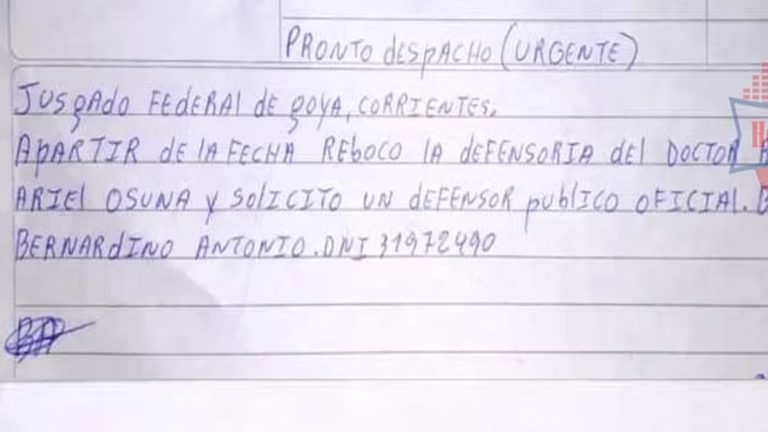 PRONTO despACHO (URGENTE)
Jusgado FEderAl de goya, CORRIENTES.
APARTIR de lA FECHA REBOCO lA dEFENSORIA del DOCTOR
ARIEl OSUNA y SolICITO UN dEFENSOR publICO OFICIAl.
BERNARdINO ANTONIO. DNI 31972490